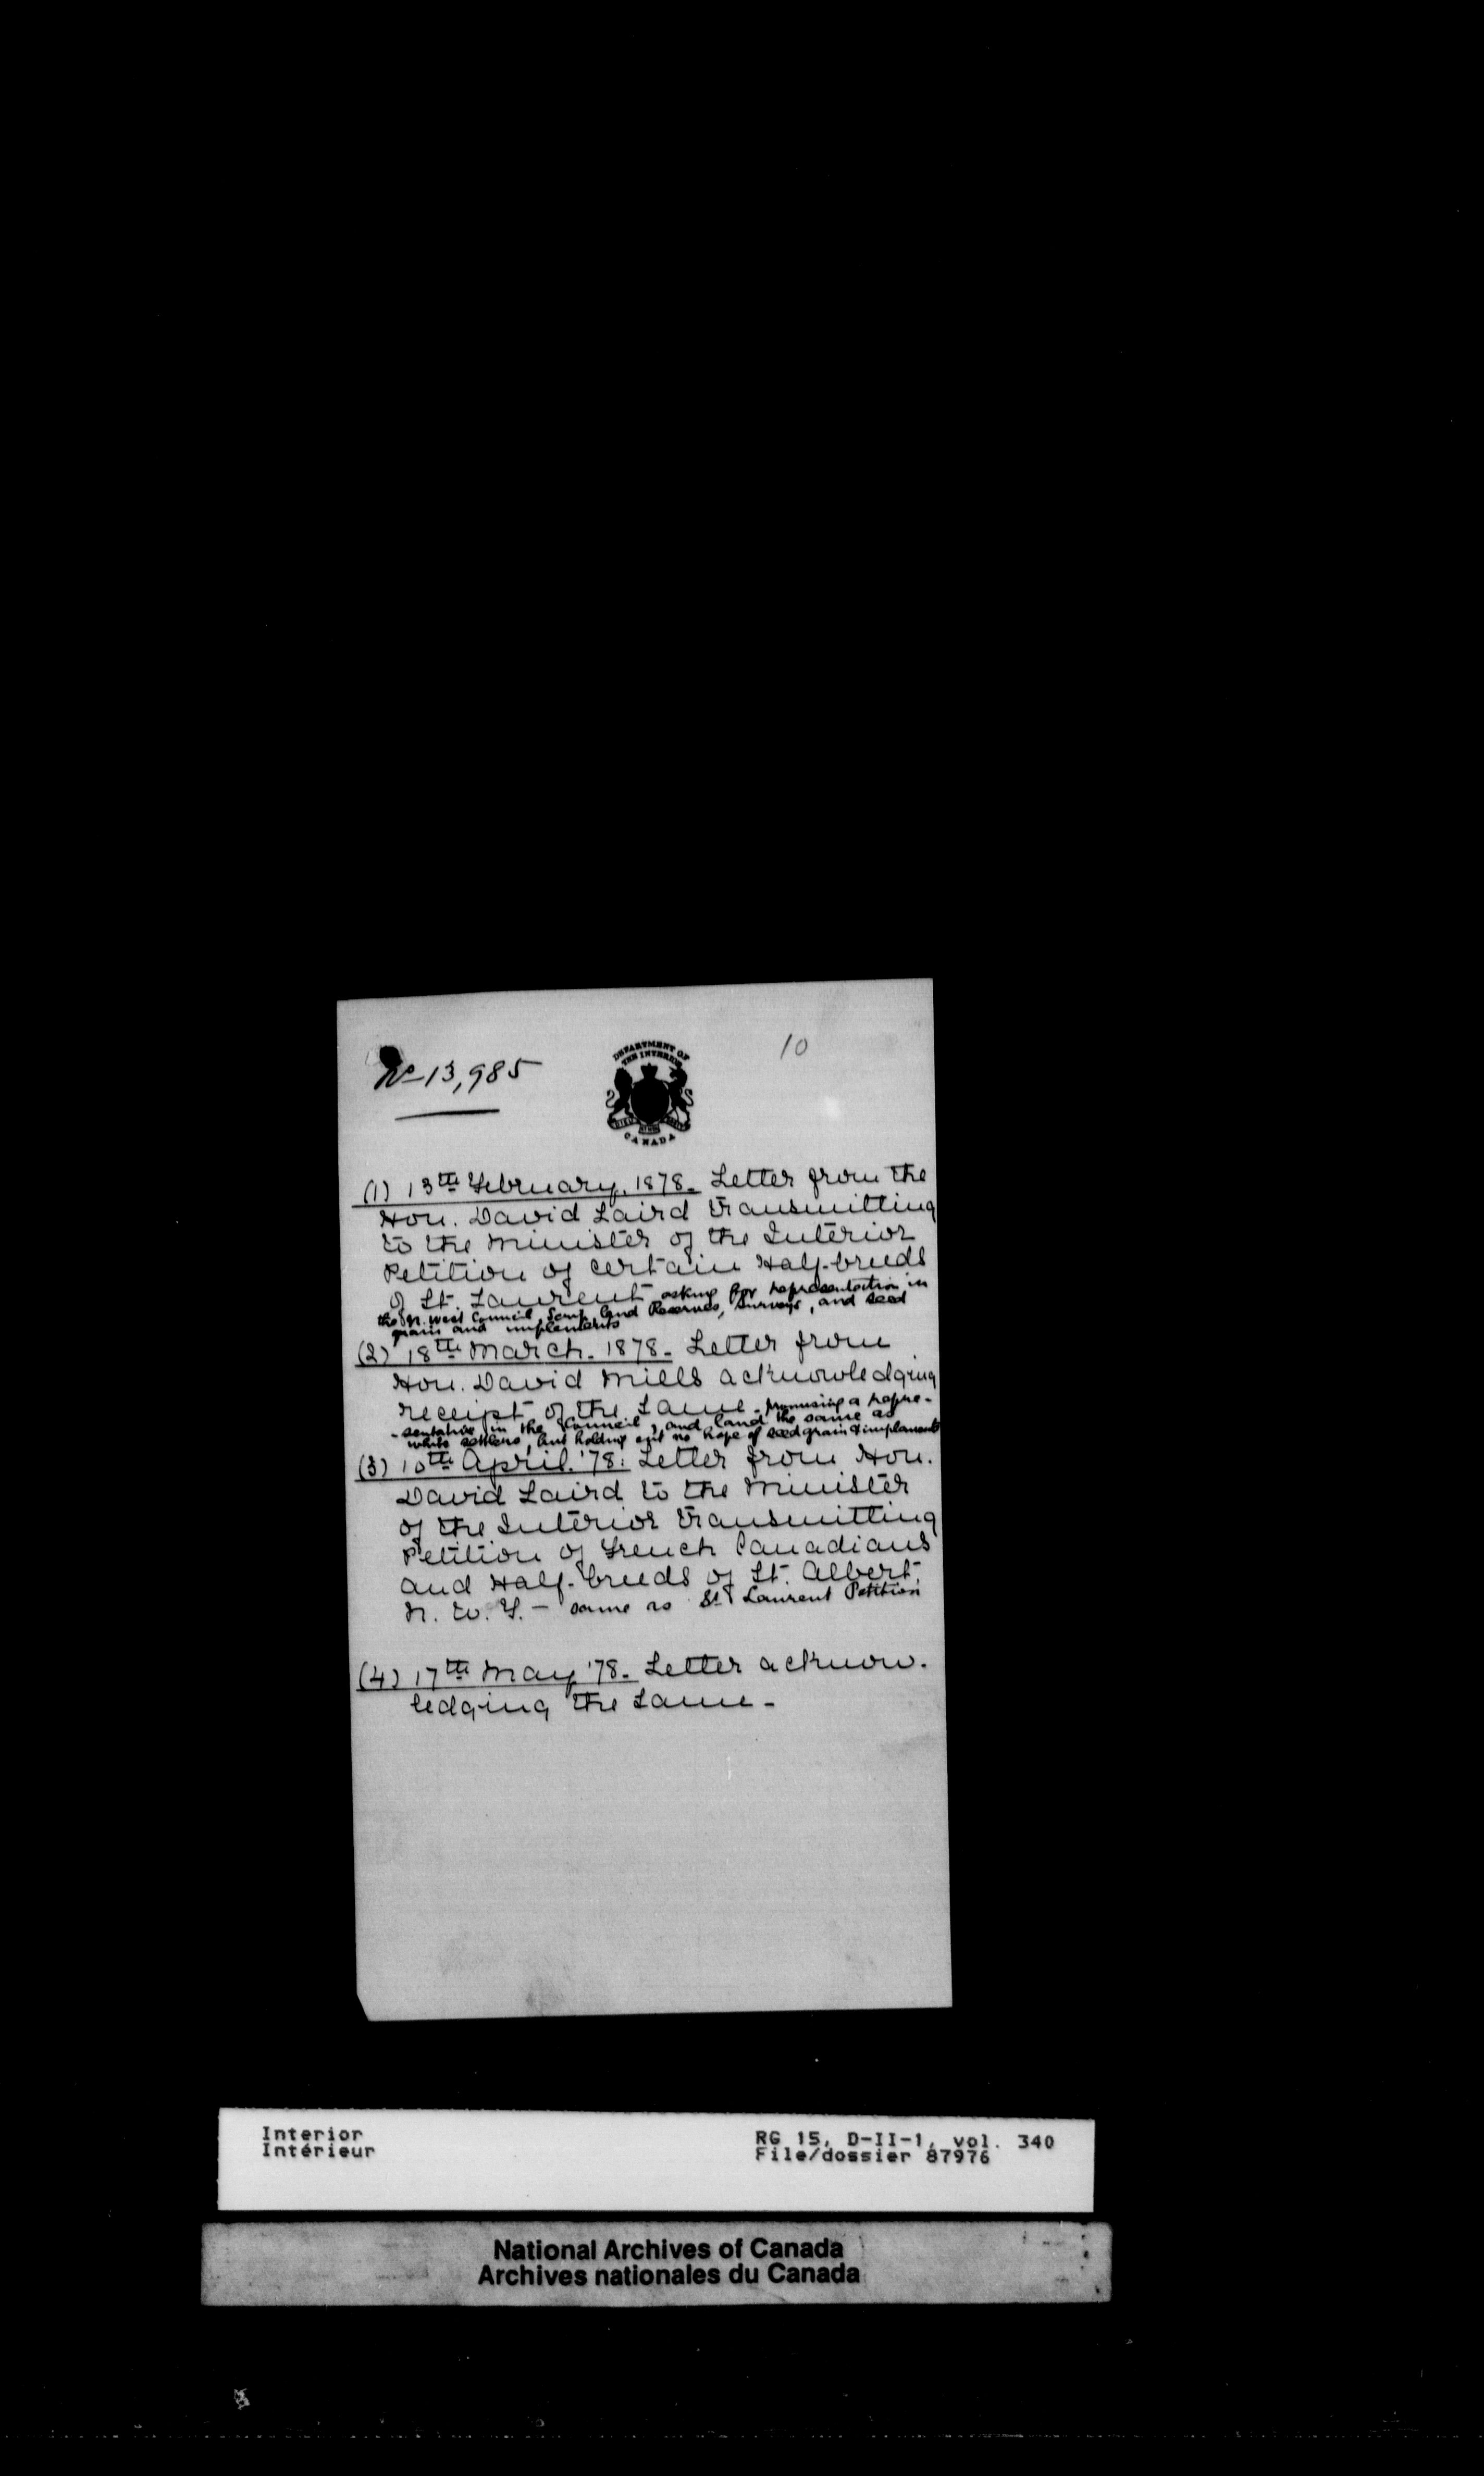 No 13,985
10
DEPARTMENT OF
THE INTERIOR
CANADA
(1) 13th February, 1878. Letter from the
Hon. David Laird transmitting
to the Minister of the Interior
Petition of certain Half-breeds
of St. Laurent asking for representation in
the N. West Council, Scrip, land Reserves, surveys, and seed
grain and implements
(2) 18th March. 1878. Letter from
Hon. David Mills acknowledging
receipt of the same - promising a repre-
-sentative in the Council, and land the same as
white settlers, but holding out no hope of seed grain & implements
(3) 10th April. '78: Letter from Hon.
David Laird to the Minister
of the Interior transmitting
Petition of French Canadians
and Half-breeds of St. Albert,
N. W. T. - same as St Laurent Petition
(4) 17th May '78. Letter acknow-
ledging the same -
Interior
Intérieur
RG 15, D-II-1, vol. 340
File/dossier 87976
National Archives of Canada
Archives nationales du Canada